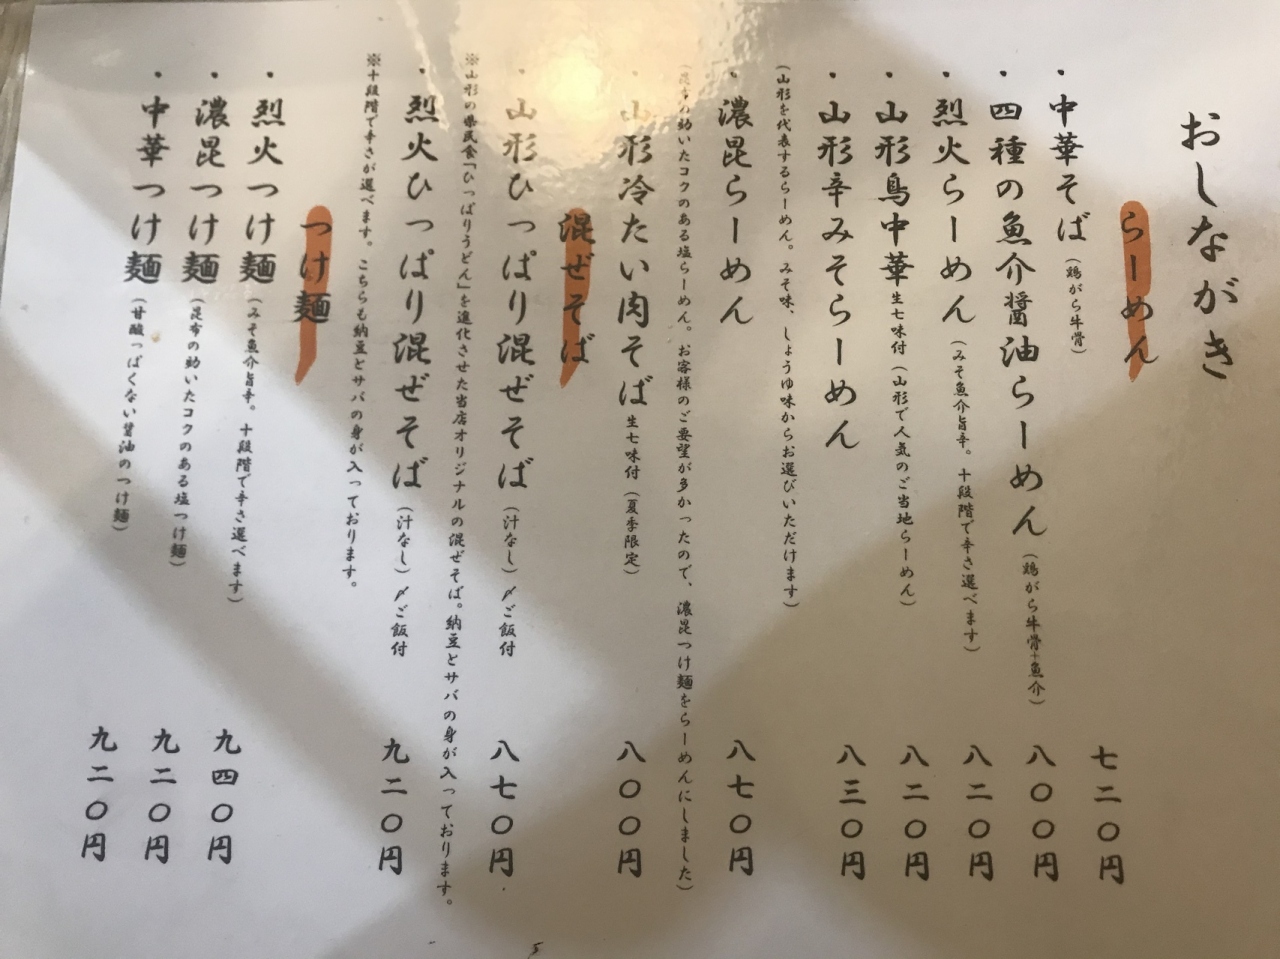 おしながき
らーめん
・中華そば（鶏がら牛骨） 七二〇円
・四種の魚介醤油らーめん（鶏がら牛骨+魚介） 八〇〇円
・烈火らーめん（みそ魚介旨辛。十段階で辛さ選べます） 八二〇円
・山形鳥中華 生七味付（山形で人気のご当地らーめん） 八二〇円
・山形辛みそらーめん 八三〇円
（山形を代表するらーめん。みそ味、しょうゆ味からお選びいただけます）
・濃昆らーめん 八七〇円
（昆布の効いたコクのある塩らーめん。お客様のご要望が多かったので、濃昆つけ麺をらーめんにしました）
・山形冷たい肉そば 生七味付（夏季限定） 八〇〇円
混ぜそば
・山形ひっぱり混ぜそば（汁なし）〆ご飯付 八七〇円
※山形の県民食「ひっぱりうどん」を進化させた当店オリジナルの混ぜそば。納豆とサバの身が入っております。
・烈火ひっぱり混ぜそば（汁なし）〆ご飯付 九二〇円
※十段階で辛さが選べます。こちらも納豆とサバの身が入っております。
つけ麺
・烈火つけ麺（みそ魚介旨辛。十段階で辛さ選べます） 九四〇円
・濃昆つけ麺（昆布の効いたコクのある塩つけ麺） 九二〇円
・中華つけ麺（甘酸っぱくない醤油のつけ麺） 九二〇円